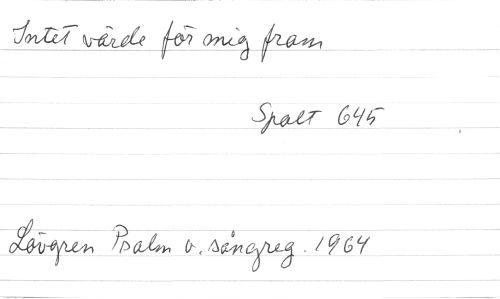 Intet värde för mig fram
Spalt 645
Lövgren Psalm o. sångreg. 1964